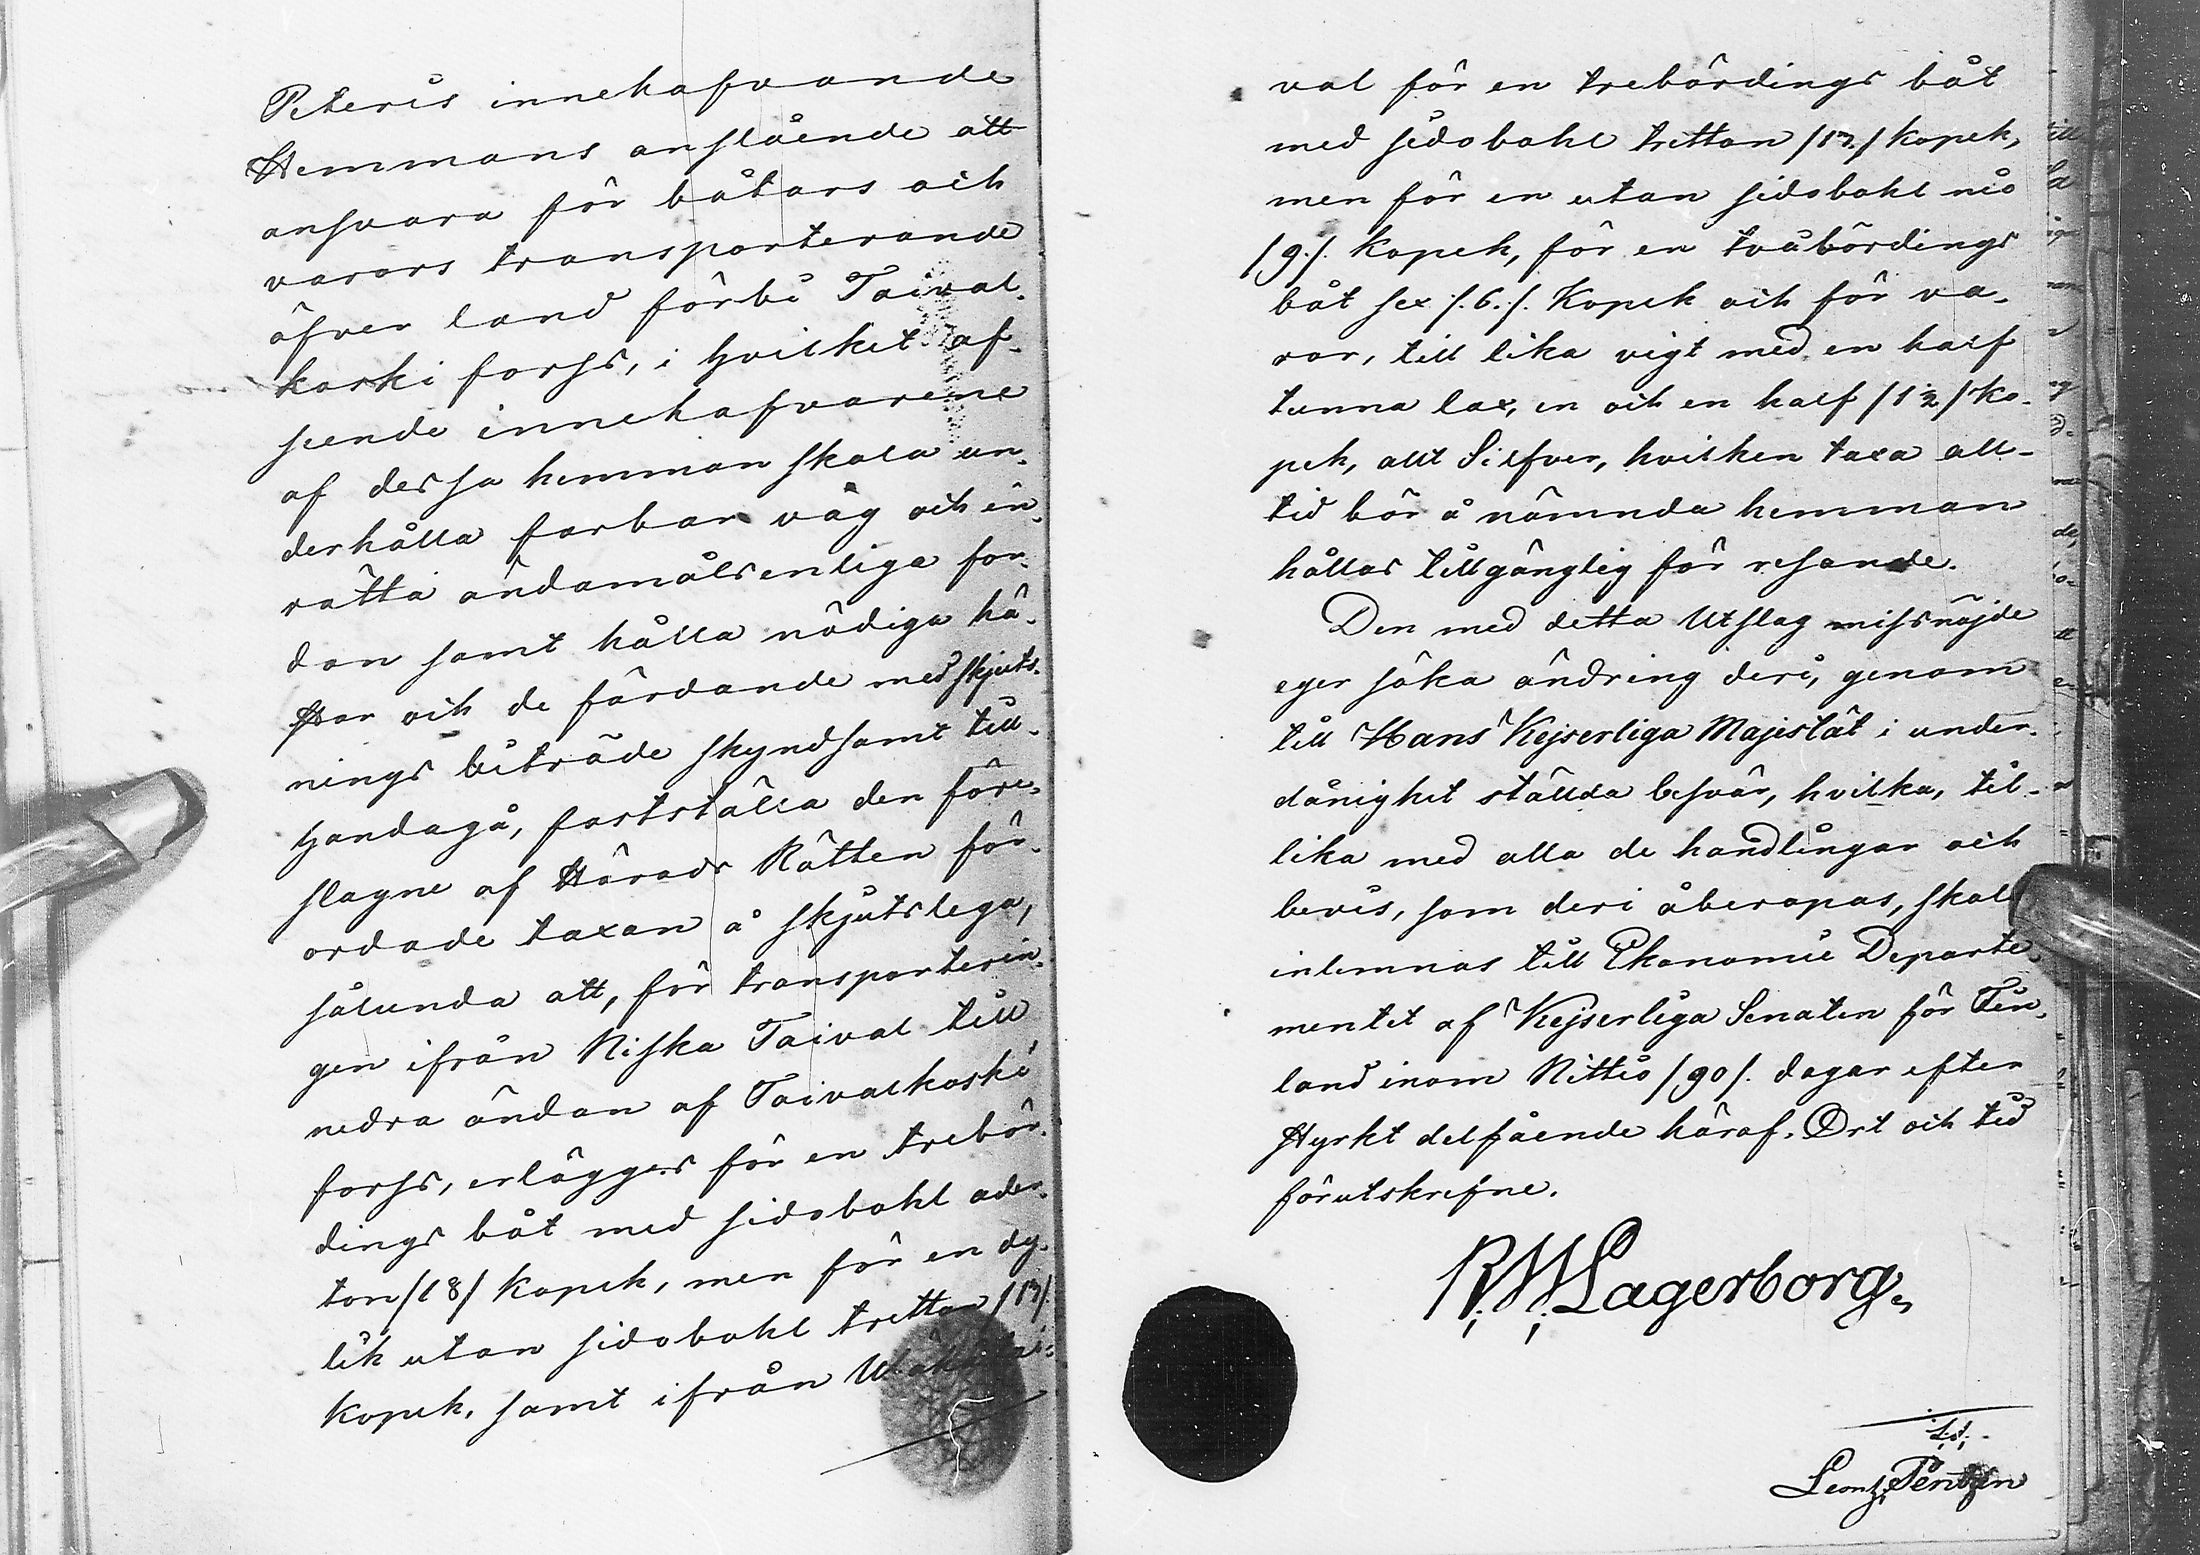 Peteris innehafvande
Hemmans anslående att
ansvara för båtars och
varors transporterande
öfver land förbi Taival-
koski forss, i hvilket af-
seende innehafvarene
af dessa hemman skola un-
derhålla farbar väg och in-
rätta ändamålsenliga for-
don samt hålla nödiga hä-
star och de färdande med skjuts-
nings biträde skyndsamt till-
handagå, fastställa den före-
slagne af Härads Rätten för-
ordade taxan å skjutslega,
sålunda att, för transporterin-
gen ifrån Niska Taival till
nedra ändan af Taivalkoski
forss, erlägges för en trebör-
dings båt med sidobohl ader-
ton /18/ kopek, men för en dy-
lik utan sidobohl tretton /13/.
kopek, samt ifrån
val för en trebördings båt
med sidobohl tretton /13/ kopek,
men för en utan sidobohl nio
/9./. kopek, för en tvåbördings
båt sex /.6./. Kopek och för va-
ror, till lika vigt med en half
tunna lax, en och en half /1½/ ko-
pek, allt Silfver, hvilken taxa all-
tid bör å nämnda hemman
hållas tillgänglig för resande.
Den med detta Utslag missnöjde
eger söka ändring deri, genom
till Hans Kejserliga Majestät i under-
dånighet ställda besvär, hvilka, til-
lika med alla de handlingar och
bevis, som deri åberopas, skall
inlemnas till Ekonomie Departe-
mentet af Kejserliga Senaten för Fin-
land inom Nittio /90/. dagar efter
styrkt delfående häraf. Ort och tid
förutskrifne.
R. W. Lagerborg.